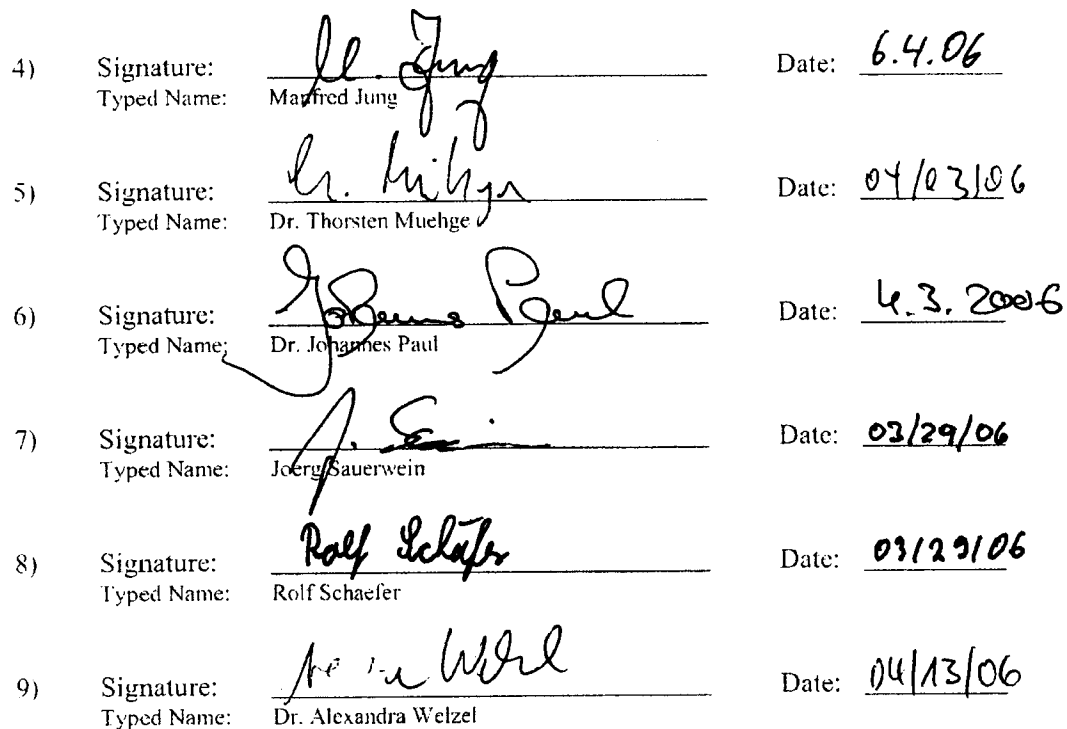 4) Signature: M. Jung Date: 6.4.06
Typed Name: Manfred Jung
5) Signature: Date: 04/03/06
Typed Name: Dr. Thorsten Muehge
6) Signature: Johannes Paul Date: 4.3.2006
Typed Name: Dr. Johannes Paul
7) Signature: Date: 03/29/06
Typed Name: Joerg Sauerwein
8) Signature: Rolf Schäfer Date: 03/29/06
Typed Name: Rolf Schaefer
9) Signature: Date: 04/13/06
Typed Name: Dr. Alexandra Welzel